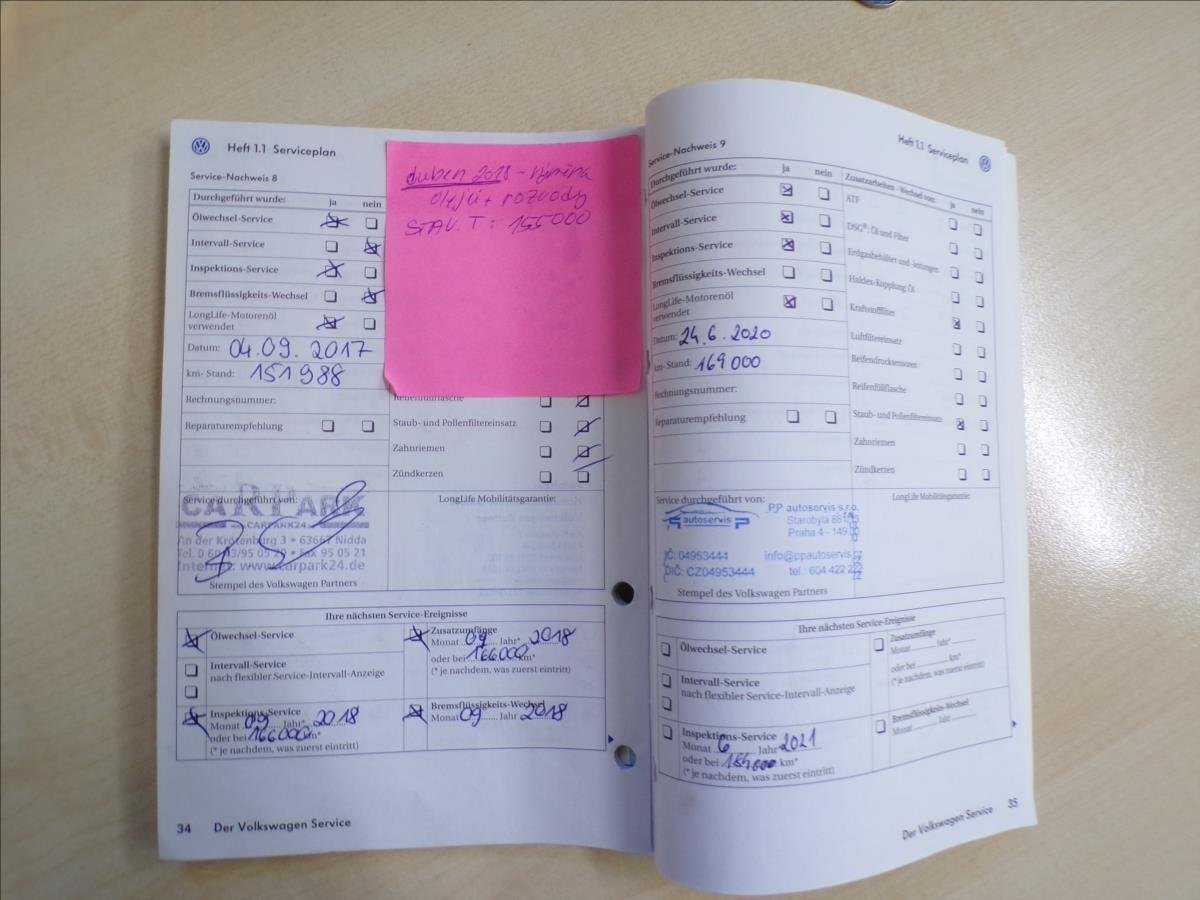 Heft 1.1 Serviceplan
Service-Nachweis 8
Durchgeführt wurde: ja nein
Ölwechsel-Service
Intervall-Service
Inspektions-Service
Bremsflüssigkeits-Wechsel
LongLife-Motorenöl
verwendet
Datum: 04.09.2017
km-Stand: 151988
Rechnungsnummer:
Reparaturempfehlung
duben 2018 - výměna
olejů + rozvody
STAV. T: 155000
Reifenfüllflasche
Staub- und Pollenfiltereinsatz
Zahnriemen
Zündkerzen
Service durchgeführt von:
CARPARK
CARPARK24
An der Krötenburg 3 • 63667 Nidda
Tel. 0 60 43/95 05 20 • Fax 95 05 21
Internet: www.carpark24.de
Stempel des Volkswagen Partners
LongLife Mobilitätsgarantie:
Ihre nächsten Service-Ereignisse
Ölwechsel-Service
Intervall-Service
nach flexibler Service-Intervall-Anzeige
Inspektions-Service
Monat 09 Jahr* 2018
oder bei 166000 km*
(* je nachdem, was zuerst eintritt)
Zusatzumfänge
Monat 09 Jahr* 2018
oder bei 166000 km*
(* je nachdem, was zuerst eintritt)
Bremsflüssigkeits-Wechsel
Monat 09 Jahr 2018
34 Der Volkswagen Service
Heft 1.1 Serviceplan
Service-Nachweis 9
Durchgeführt wurde: ja nein
Ölwechsel-Service
Intervall-Service
Inspektions-Service
Bremsflüssigkeits-Wechsel
LongLife-Motorenöl
verwendet
Datum: 24.6.2020
km-Stand: 169000
Rechnungsnummer:
Reparaturempfehlung
Zusatzarbeiten - Wechsel von: ja nein
ATF
DSG®: Öl und Filter
Erdgasbehälter und -leitungen
Haldex-Kupplung: Öl
Kraftstofffilter
Luftfiltereinsatz
Reifendrucksensoren
Reifenfüllflasche
Staub- und Pollenfiltereinsatz
Zahnriemen
Zündkerzen
Service durchgeführt von:
autoservis
PP autoservis s.r.o.
Starobylá
Praha 4 - 149 00
IČ: 04953444 info@ppautoservis.cz
DIČ: CZ04953444 tel.: 604 422 222
Stempel des Volkswagen Partners
LongLife Mobilitätsgarantie:
Ihre nächsten Service-Ereignisse
Ölwechsel-Service
Intervall-Service
nach flexibler Service-Intervall-Anzeige
Inspektions-Service
Monat 6 Jahr 2021
oder bei km*
(* je nachdem, was zuerst eintritt)
Zusatzumfänge
Monat Jahr*
oder bei km*
(* je nachdem, was zuerst eintritt)
Bremsflüssigkeits-Wechsel
Monat Jahr
Der Volkswagen Service 35